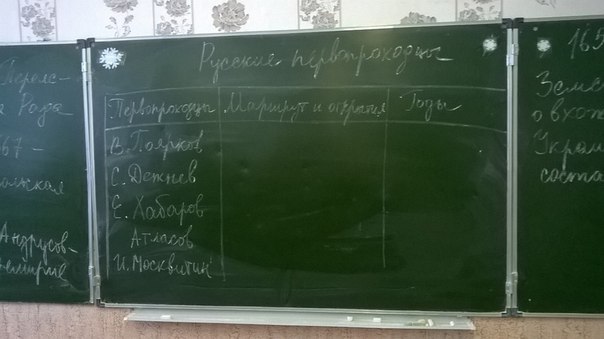 Переяс-
я Рада
67 -
ольская
Андрусов-
ремирие
Русские первопроходцы
Первопроходцы Маршрут и открытия Годы
В. Поярков
С. Дежнев
Е. Хабаров
Атласов
И. Москвитин
165
Земс
о вхож
Украи
соста